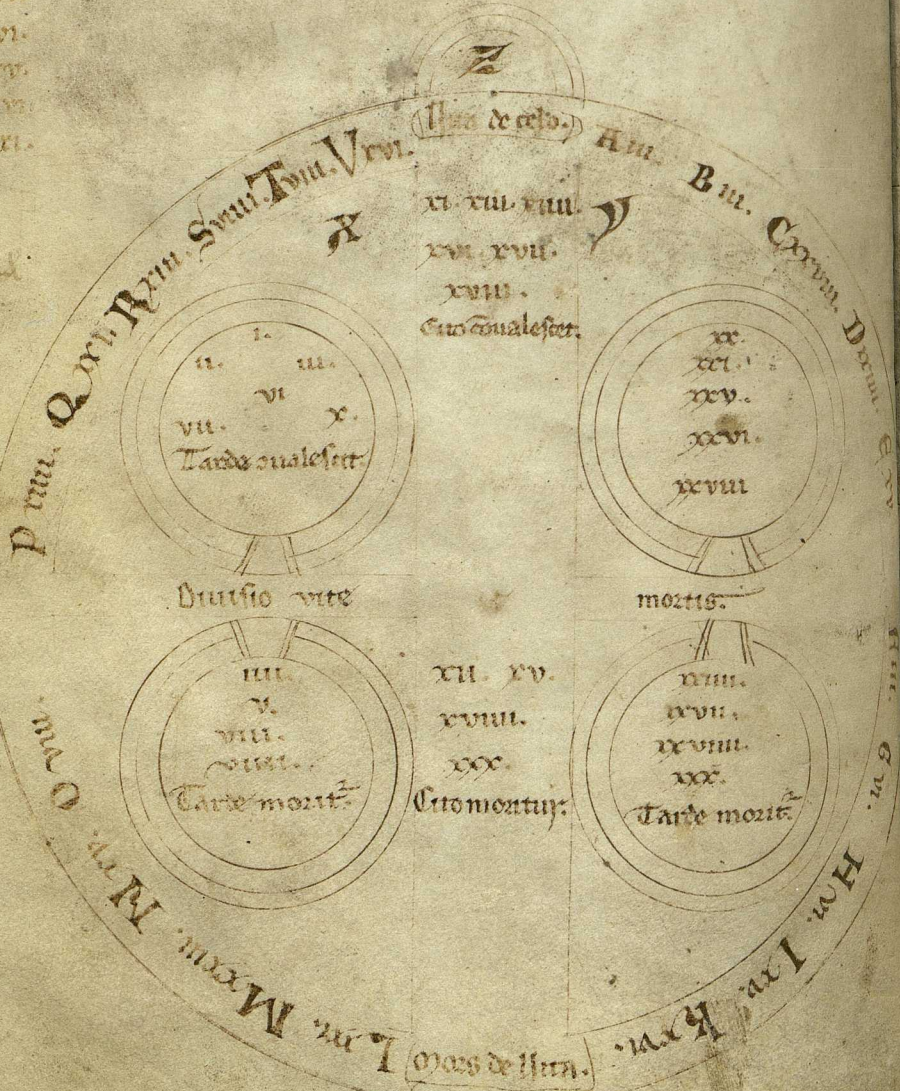 Z
de celo.
A iii. B iii. C xxviii. D xxiiii. E xv
G vii. H vi. I xv. K xvi.
Mors de
L iii. M xxiii. N xv. O viii.
P xiiii. Q xxi. R xiii. S viiii. T viii. V xvi.
X
Y
xi. xiii. xiiii.
xvi. xvii.
xviii.
Cito c̄ualescet.
i.
ii. iii.
vi
vii. x.
Tarde
xx.
xxi.
xxv.
xxvi.
xxviii
Diuisio vite
mortis.
iiii.
v.
viii.
viiii.
Tarde morit᷑
xii. xv.
xviiii.
xxx.
Cito
xxiiii.
xxvii.
xxviiii.
xxx.
Tarde morit᷑